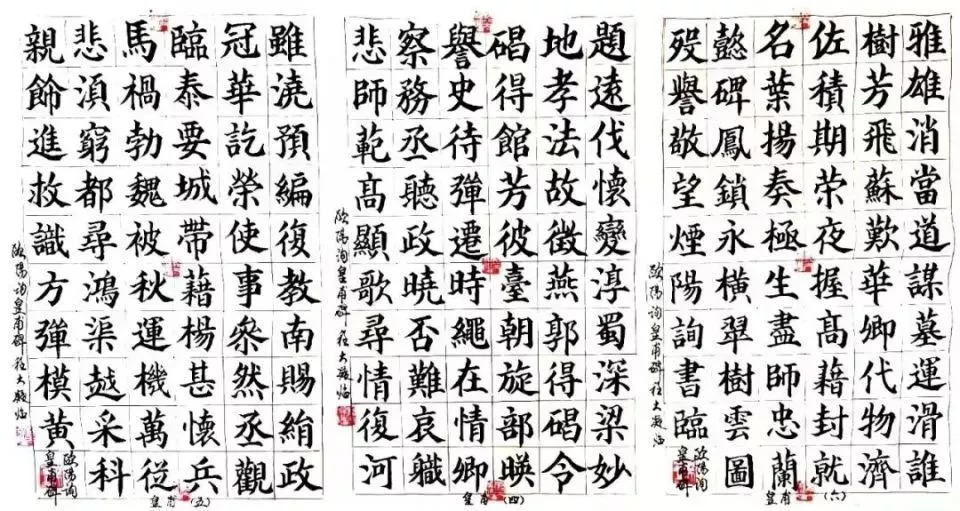 雅雄消當道謀墓運滑誰
樹芳飛蘇歎華卿代物濟
佐積期荣夜握高藉封就
名葉揚奏極生盡師忠蘭
懿碑鳳鎖永橫翠樹雲圖
殁譽敬望煙陽詢書臨
歐陽詢
皇甫碑
歐陽詢皇甫碑程大臨
皇甫(六)
題遠伐懷變淳蜀深梁妙
地孝法故徵燕郭得碣令
碣得館芳彼臺朝旋部暎
譽史待彈遷時繩在情卿
察務丞聽政曉否難哀職
悲師範高顯歌尋情復河
歐陽詢皇甫碑程大臨
皇甫(四)
雖澆預編復教南賜絹政
冠華訖榮使事叅然丞觀
臨泰要城帶藉楊甚懷兵
馬禍勃魏被秋運機萬從
悲湏窮都尋鴻渠越采科
親飾進救識方彈模黃
歐陽詢
皇甫碑
歐陽詢皇甫碑程大臨
皇甫(五)